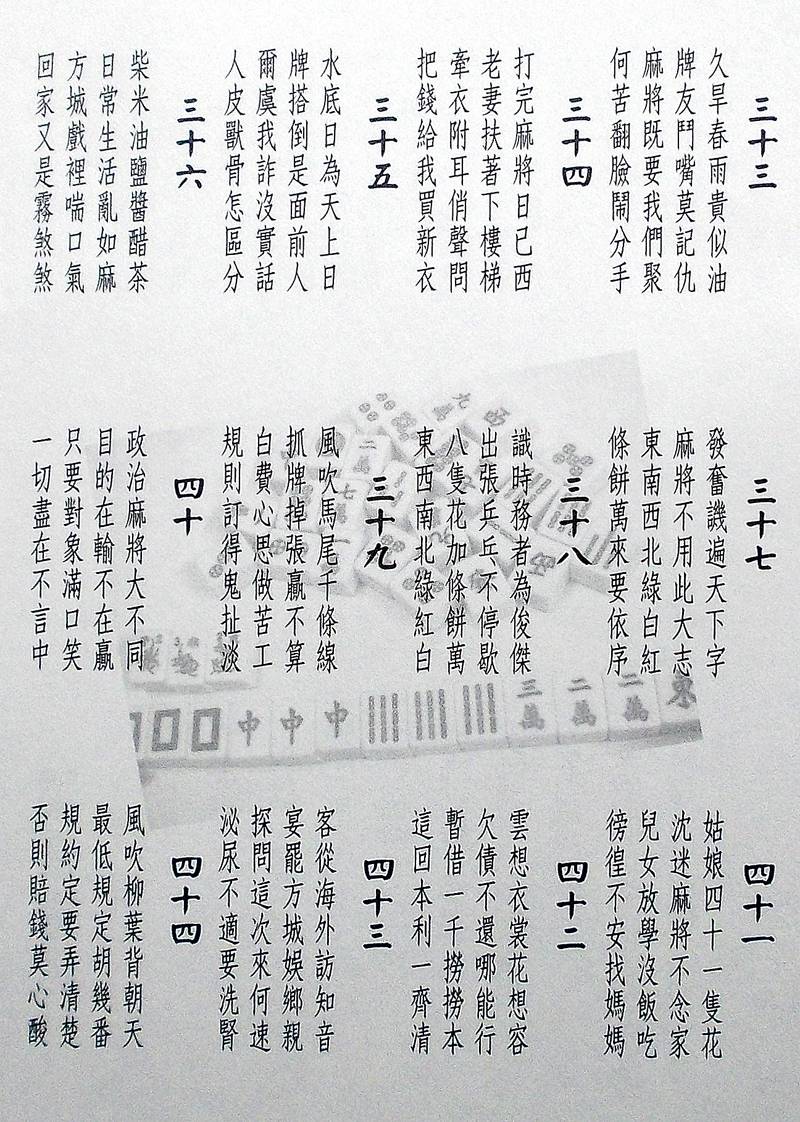 三十三
久旱春雨貴似油
牌友鬥嘴莫記仇
麻將既要我們聚
何苦翻臉鬧分手
三十四
打完麻將日已西
老妻扶著下樓梯
牽衣附耳俏聲問
把錢給我買新衣
三十五
水底日為天上日
牌搭倒是面前人
爾虞我詐沒實話
人皮獸骨怎區分
三十六
柴米油鹽醬醋茶
日常生活亂如麻
方城戲裡喘口氣
回家又是霧煞煞
三十七
發奮譏遍天下字
麻將不用此大志
東南西北綠白紅
條餅萬來要依序
三十八
識時務者為俊傑
出張乒乓不停歇
八隻花加條餅萬
東西南北綠紅白
三十九
風吹馬尾千條線
抓牌掉張贏不算
白費心思做苦工
規則訂得鬼扯淡
四十
政治麻將大不同
目的在輸不在贏
只要對象滿口笑
一切盡在不言中
四十一
姑娘四十一隻花
沈迷麻將不念家
兒女放學沒飯吃
徬徨不安找媽媽
四十二
雲想衣裳花想容
欠債不還哪能行
暫借一千撈撈本
這回本利一齊清
四十三
客從海外訪知音
宴罷方城娛鄉親
探問這次來何速
泌尿不適要洗腎
四十四
風吹柳葉背朝天
最低規定胡幾番
規約定要弄清楚
否則賠錢莫心酸
中
中
中
三萬
二萬
二萬
東